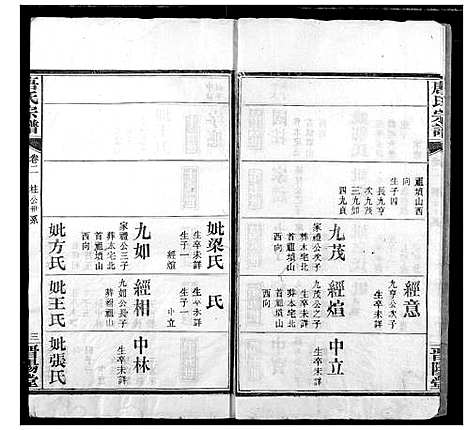 唐氏宗譜
首離填山西
向
生子四
長九亨
次九茂
三九如
四九貞
經意
九亨公次子
生卒未詳
九茂
家禮公次子
生卒未詳
葬木宅北
首離填山
西向
經煊
九茂公之子
生卒未詳
葬本宅北
首離填山
西向
中立
生卒未詳
晋陽堂
妣梁氏
生卒未詳
生子一
經煊
氏
生卒未詳
生子一
中立
九如
家禮公三子
生卒未詳
葬木宅北
首離填山
西向
經相
九如公長子
生卒未詳
葬祖塋
中林
生卒未詳
妣方氏
妣王氏
妣張氏
唐氏宗譜
卷二
柱公世系
三
晋陽堂